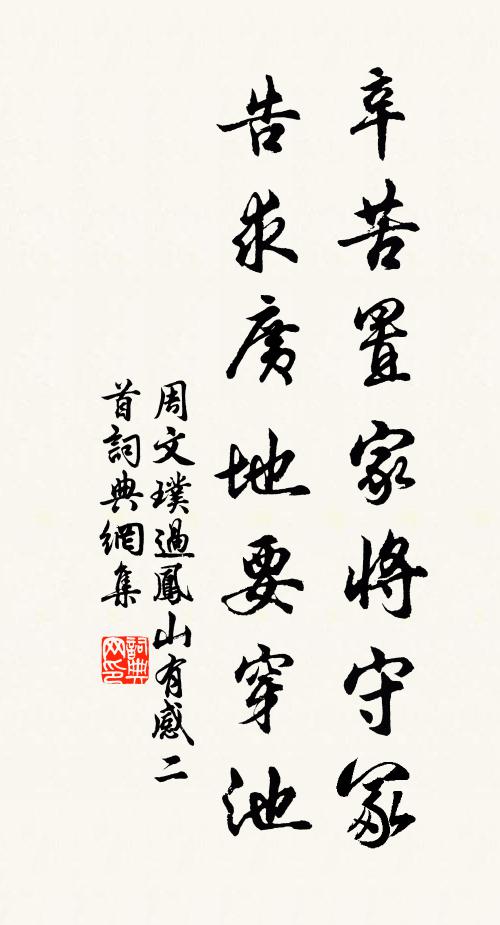 辛苦置家將守冢
告求廣地要穿池
周文璞過鳳山有感二
首詞典網集
詞典
網印